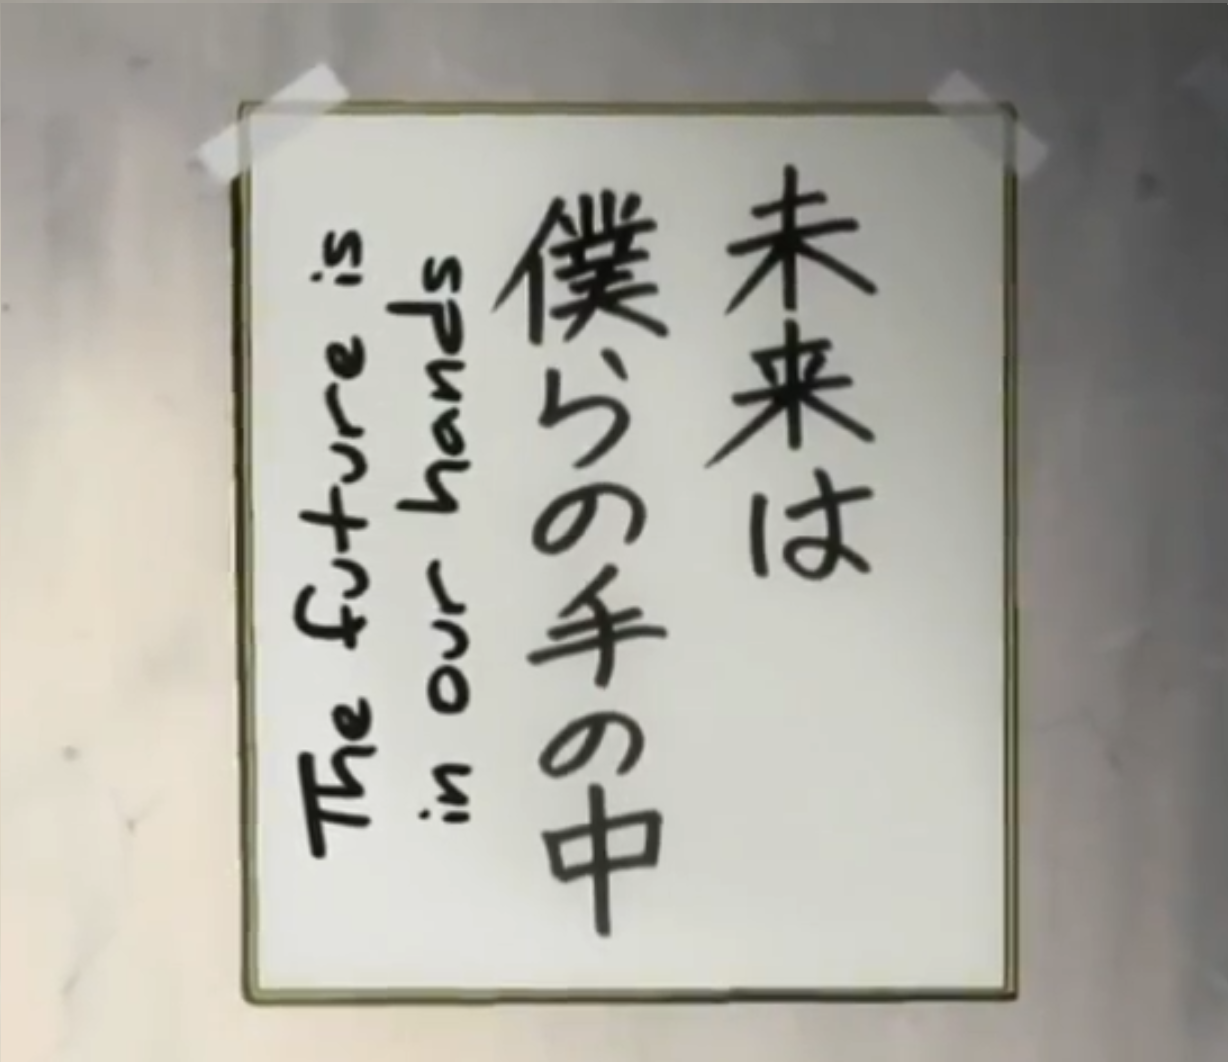 未来は
僕らの手の中
The future is
in our hands